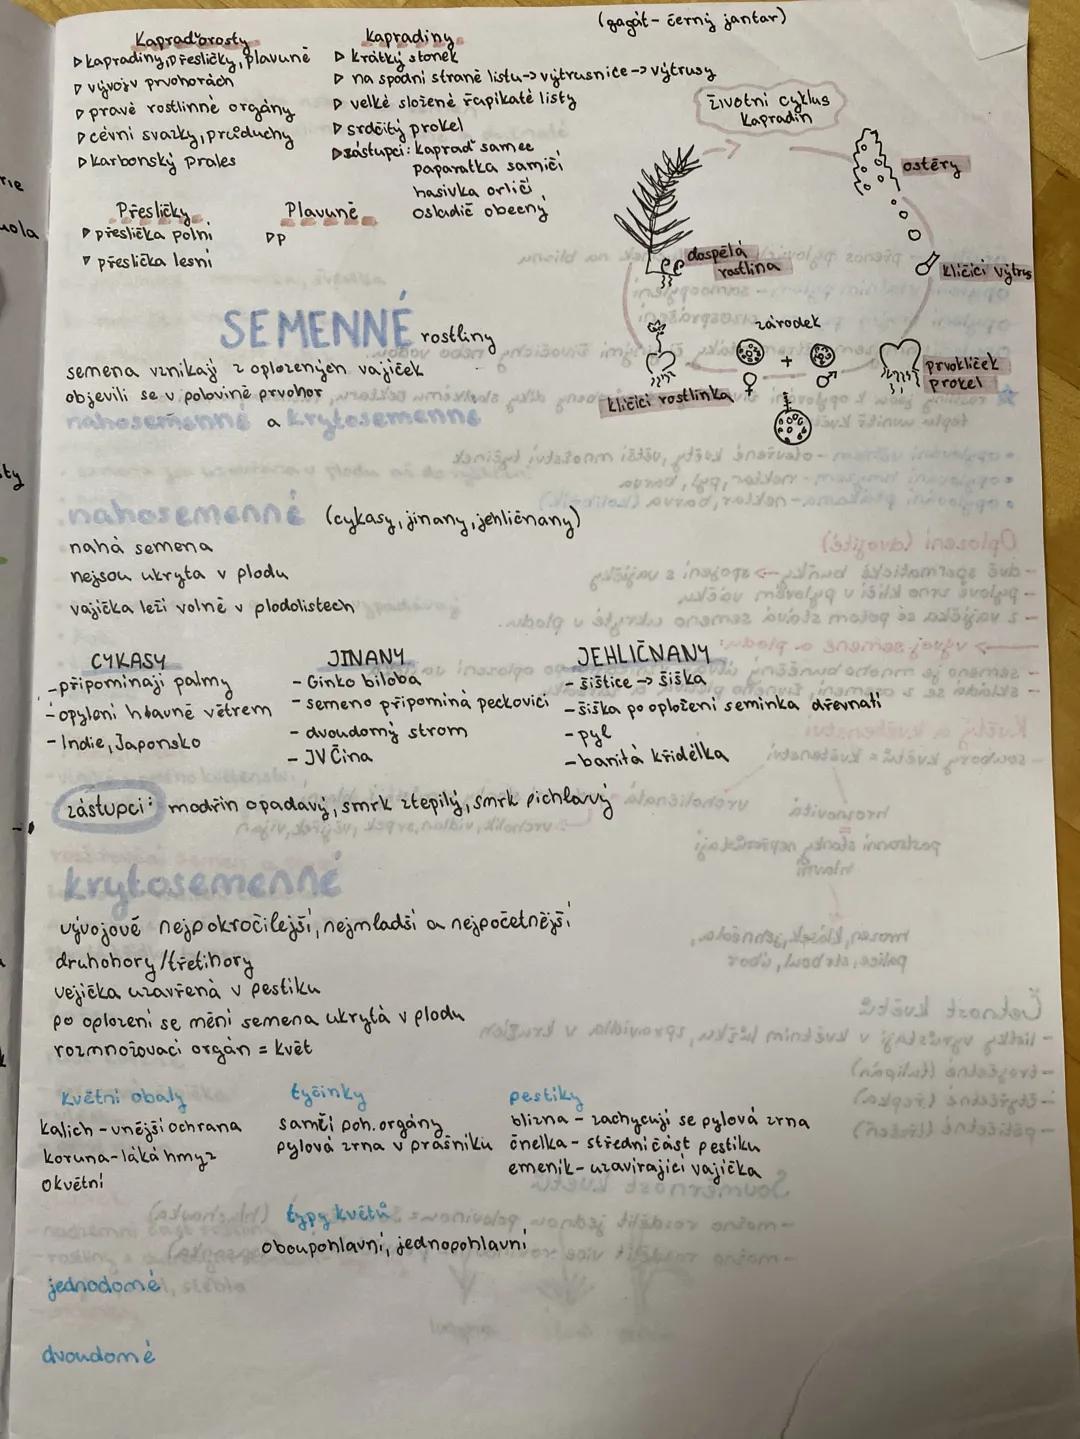 (gagát - černý jantar)
Kapraďorosty
▷ kapradiny, přesličky, plavuně
▷ vývoj v prvohorách
▷ pravé rostlinné orgány
▷ cévní svazky, průduchy
▷ karbonský prales
Kapradiny
▷ krátký stonek
▷ na spodní straně listu -> výtrusnice -> výtrusy
▷ velké složené řapíkaté listy
▷ srdčitý prokel
▷ zástupci: kapraď samec
paparatka samičí
hasivka orličí
osladič obecný
Přesličky
▷ přeslička polní
▷ přeslička lesní
Plavuně
▷ p
životní cyklus
kapradin
ostěry
klíčící výtrus
prvoklíček
prokel
zárodek
♀ + ♂
klíčící rostlinka
dospělá
rostlina
SEMENNÉ rostliny
semena vznikají z oplozených vajíček
objevili se v polovině prvohor
nahosemenné a krytosemenné
nahosemenné (cykasy, jinany, jehličnany)
nahá semena
nejsou ukryta v plodu
vajíčka leží volně v plodolistech
CYKASY
- připomínají palmy
- opylení hlavně větrem
- Indie, Japonsko
JINANY
- Ginko biloba
- semeno připomíná peckovici
- dvoudomý strom
- JV Čína
JEHLIČNANY
- šištice -> šiška
- šiška po oplození semínka dřevnatí
- pyl
- banitá křidélka
zástupci: modřín opadavý, smrk ztepilý, smrk pichlavý
krytosemenné
vývojově nejpokročilejší, nejmladší a nejpočetnější
druhohory/třetihory
vejíčka uzavřená v pestíku
po oplození se mění semena ukrytá v plodu
rozmnožovací orgán = květ
květní obaly
kalich - vnější ochrana
koruna - láká hmyz
okvětní
tyčinky
samčí poh. orgány
pylová zrna v prašníku
pestíky
blizna - zachycují se pylová zrna
čnelka - střední část pestíku
semeník - uzavírající vajíčka
typy květů
oboupohlavní, jednopohlavní
jednodomé
dvoudomé